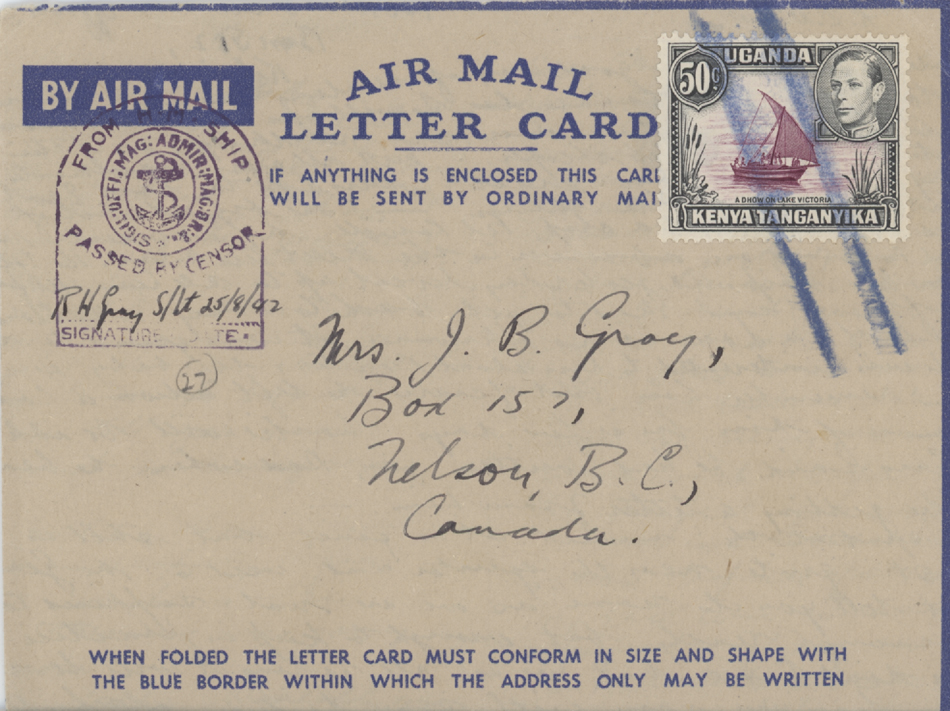 BY AIR MAIL
AIR MAIL
LETTER CARD
IF ANYTHING IS ENCLOSED THIS CARD
WILL BE SENT BY ORDINARY MAIL
UGANDA
50c
A DHOW ON LAKE VICTORIA
KENYA TANGANYIKA
FROM H.M. SHIP
MAG: ADMIR: MAG: BR: &
SIGIL: OFFI:
PASSED BY CENSOR
R H Gray S/Lt 25/8/42
SIGNATURE DATE
27
Mrs. J. B. Gray,
Box 157,
Nelson, B. C.,
Canada.
WHEN FOLDED THE LETTER CARD MUST CONFORM IN SIZE AND SHAPE WITH
THE BLUE BORDER WITHIN WHICH THE ADDRESS ONLY MAY BE WRITTEN